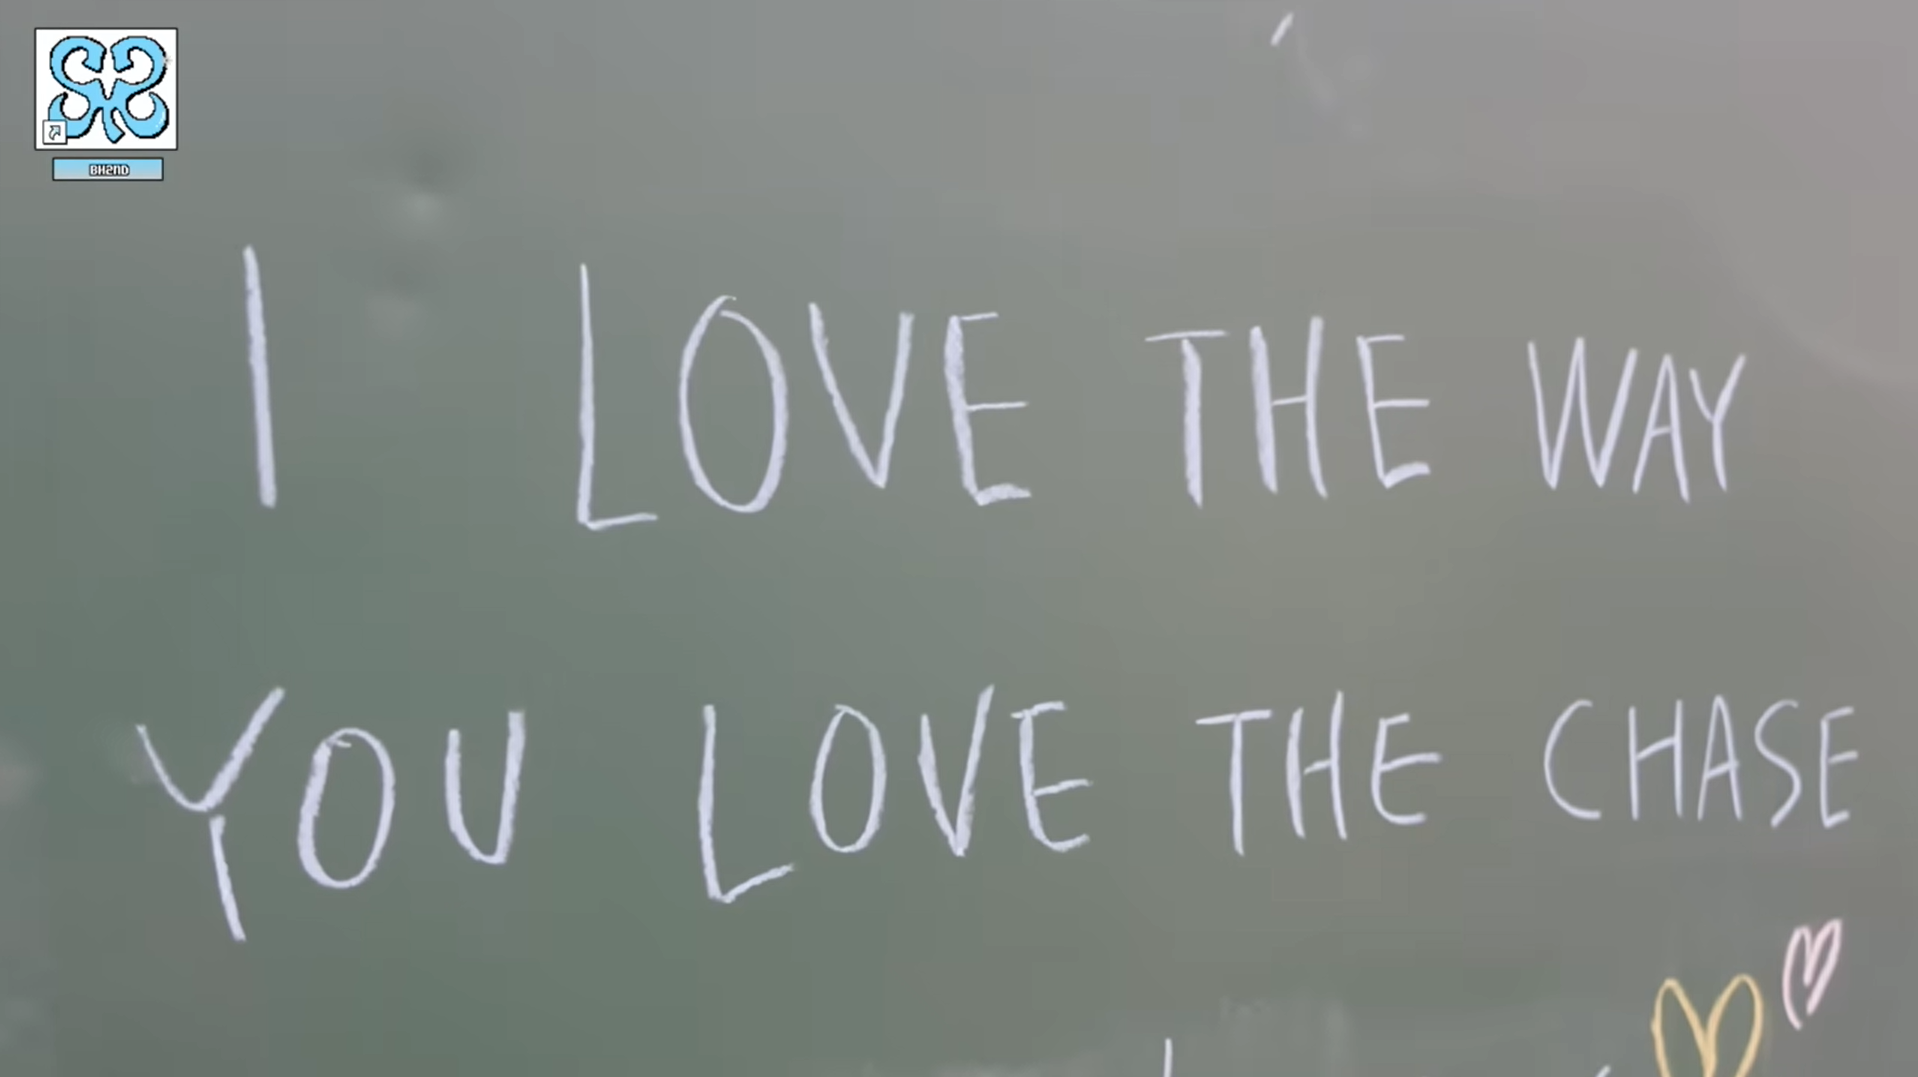 BH2ND
I LOVE THE WAY
YOU LOVE THE CHASE